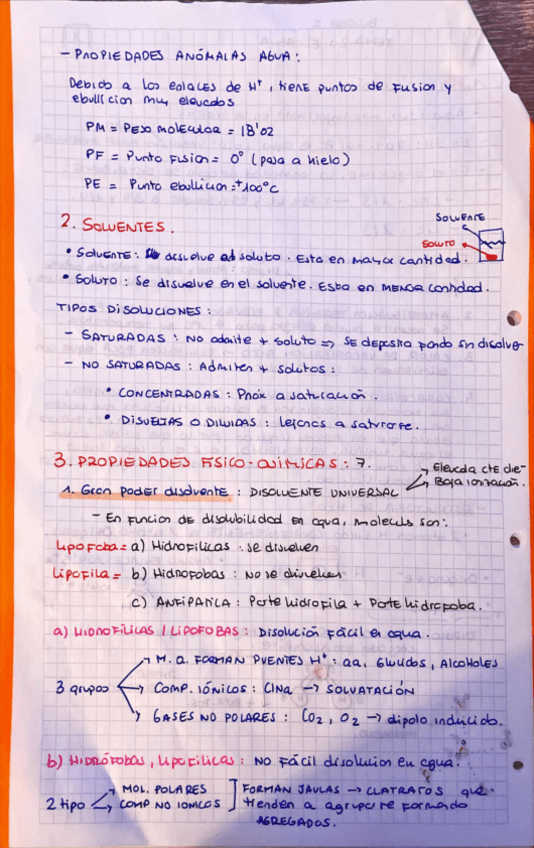 - PROPIEDADES ANÓMALAS AGUA:
Debido a los enlaces de H⁺, tiene puntos de fusion y
ebullicion muy elevados
PM = Peso molecular = 18'02
PF = Punto Fusion = 0° (pasa a hielo)
PE = Punto ebullicion = +100°C
2. SOLVENTES.
SOLVENTE
SOLUTO
• SOLVENTE: disuelve al soluto. Esta en mayor cantidad.
• SOLUTO: Se disuelve en el solvente. Esta en MENOR cantidad.
TIPOS DISOLUCIONES:
- SATURADAS: NO admite + soluto => SE deposita fondo sin disolver
- NO SATURADAS: Admiten + solutos:
• CONCENTRADAS: Próx a saturación.
• DISUELTAS O DILUIDAS: lejanas a saturarse.
3. PROPIEDADES FISICO-QUIMICAS: 7.
1. Gran poder disolvente: DISOLVENTE UNIVERSAL
→ Elevada cte die-
→ Baja ionización.
- En funcion DE disolubilidad en agua, moleculs son:
Lipofoba = a) Hidrofilicas: se disuelven
Lipofila = b) Hidrofobas: No se disuelven
c) ANFIPATICA: Parte hidrofila + Parte hidrofoba.
a) HIDROFÍLICAS / LIPOFOBAS: Disolución Fácil en agua.
3 grupos
→ M.Q. FORMAN PUENTES H⁺: aa, Glucidos, Alcoholes
→ COMP. IÓNICOS: ClNa → SOLVATACIÓN
→ GASES NO POLARES: CO2, O2 → dipolo inducido.
b) HIDRÓFOBAS, Lipofilicas: NO Fácil disolucion en agua.
2 tipo
→ MOL. POLARES
→ COMP NO IONICOS
FORMAN JAULAS → CLATRATOS que
tienden a agruparse formando
AGREGADOS.